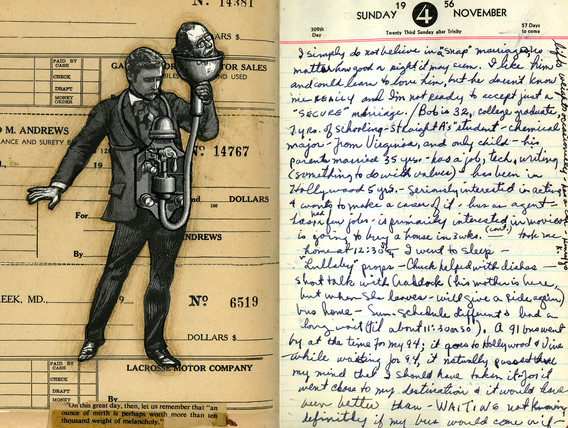 No 14381
ARS $
PAID BY
CASH
CHECK
DRAFT
MONEY
ORDER
GA
OR SALES
ND USED
D M. ANDREWS
ANCE AND SURETY B
No 14767
100
DOLLARS
For
ANDREWS
By
REEK, MD.,
19
No 6519
DOLLARS $
By
PAID BY
CASH
CHECK
DRAFT
MONEY
ORDER
LACROSSE MOTOR COMPANY
"On this great day, then, let us remember that "an
ounce of mirth is perhaps worth more than ten
thousand weight of melancholy."
SUNDAY 19 4 56 NOVEMBER
309th
Day
Twenty Third Sunday after Trinity
57 Days
to come
I simply do not believe in "snap" marriages no
matter how good or right it may seem. I like him
and could learn to love him, but he doesn't know
me really and I'm not ready to accept just a
"secure" marriage. / Bob is 32, college graduate,
7 yrs. of schooling - straight A's student - chemical
major - from Virginia, and only child - his
parents married 35 yrs - has a job, tech. writing
(something to do with valves) - has been in
Hollywood 5 yrs. - Seriously interested in acting
& wants to make a career of it - has an agent -
has had few jobs - is primarily interested in movies
is going to buy a house in 3 wks. (cont.) took me
home at 12:30 I went to sleep -
"Lullaby" props - Chuck helped with dishes -
short talk with Craddock (his mother is here,
but when she leaves - will give a ride again)
bus home - Sun. schedule different & had a
long wait (til about 11:30 or so). A 91 bus went
by at the time for my 94; it goes to Hollywood & Vine
while waiting for 94, it naturally passed thru
my mind that I should have taken it - for it
went close to my destination & it would have
been better than - WAITING not knowing
definitely if my bus would come or if -